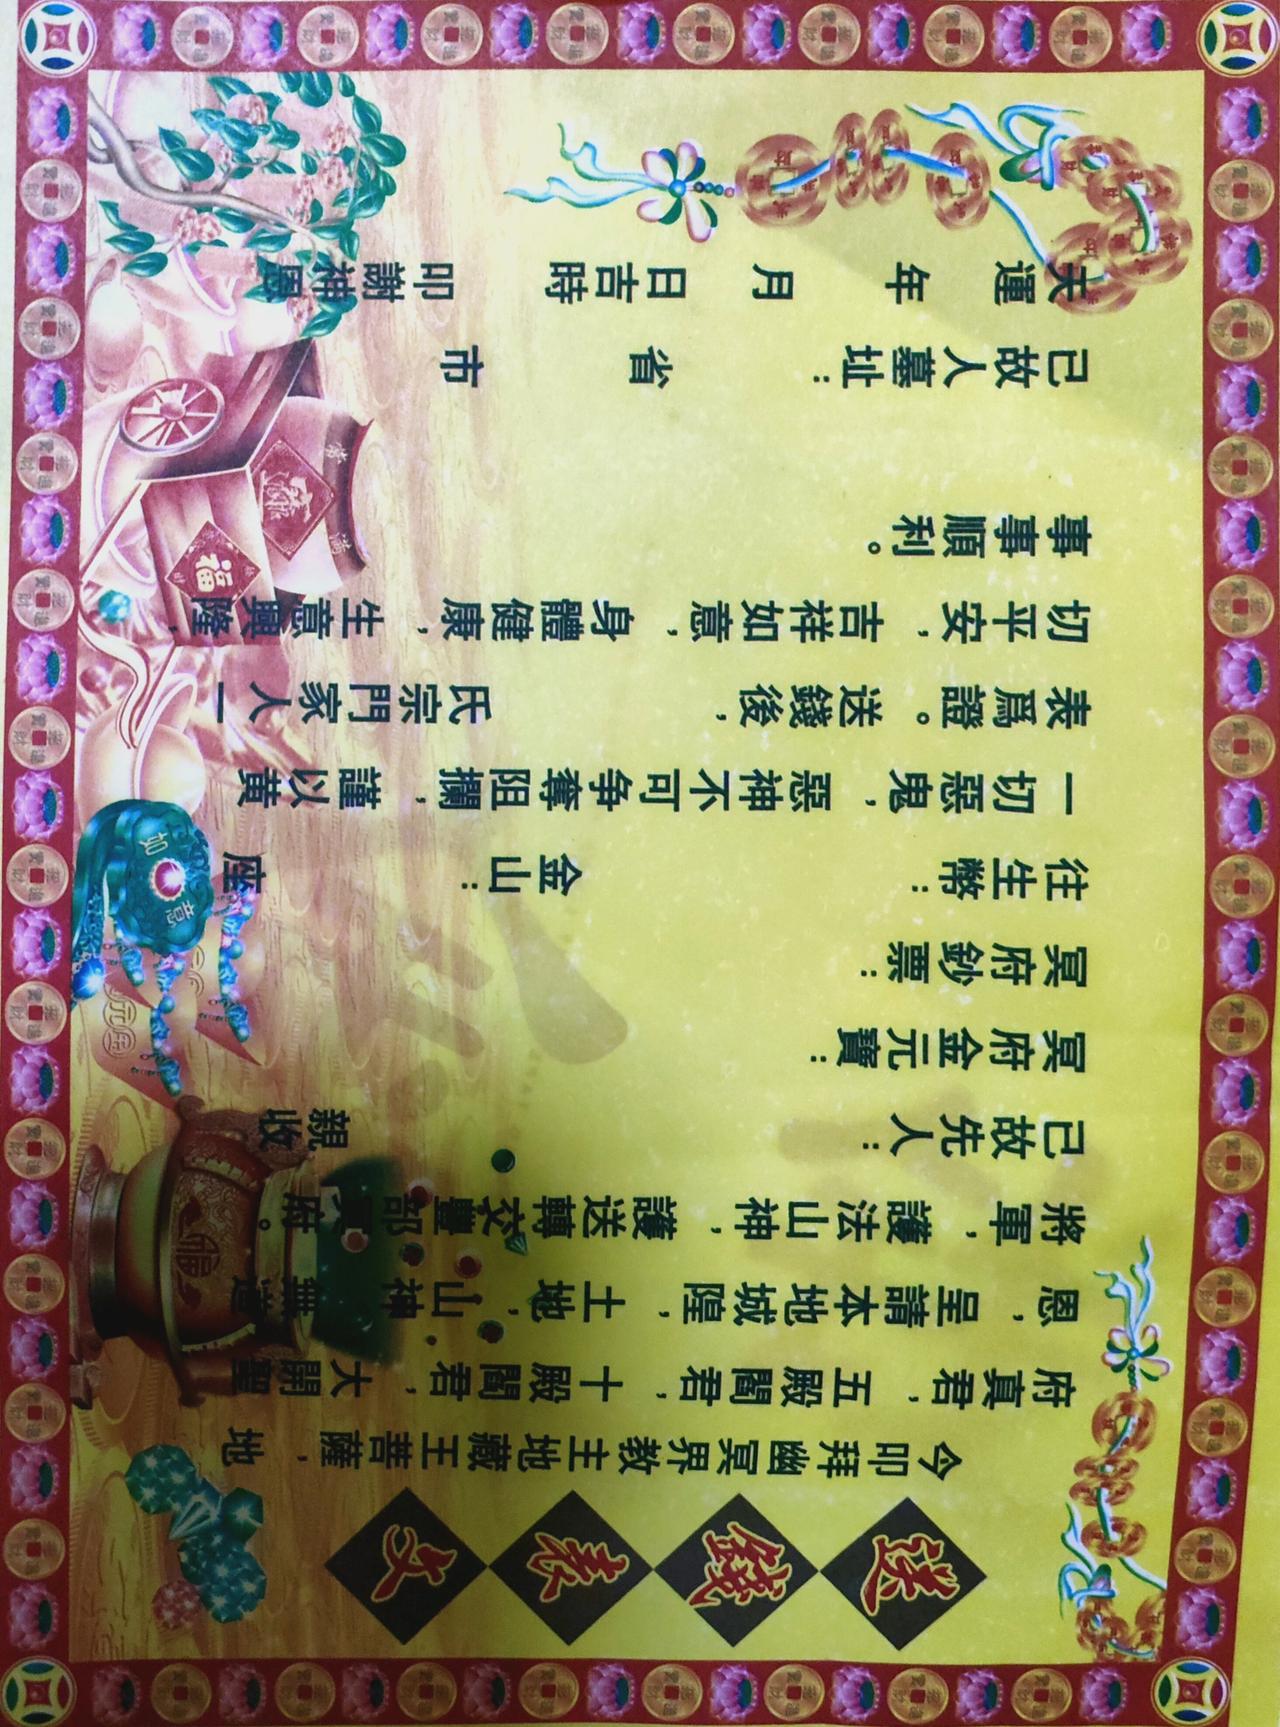 送錢表文
今叩拜幽冥界教主地藏王菩薩，地
府真君，五殿閻君，十殿閻君，大開聖
恩，呈請本地城隍，土地，山神，無道
將軍，護法山神，護送轉交豐都冥府。
已故先人： 親收
冥府金元寶：
冥府鈔票：
往生幣： 金山： 座
一切惡鬼，惡神不可争奪阻攔，謹以黃
表爲證。送錢後， 氏宗門家人一
切平安，吉祥如意，身體健康，生意興隆，
事事順利。
已故人墓址： 省 市
天運 年 月 日吉時 叩謝神恩
如意
福
常滿